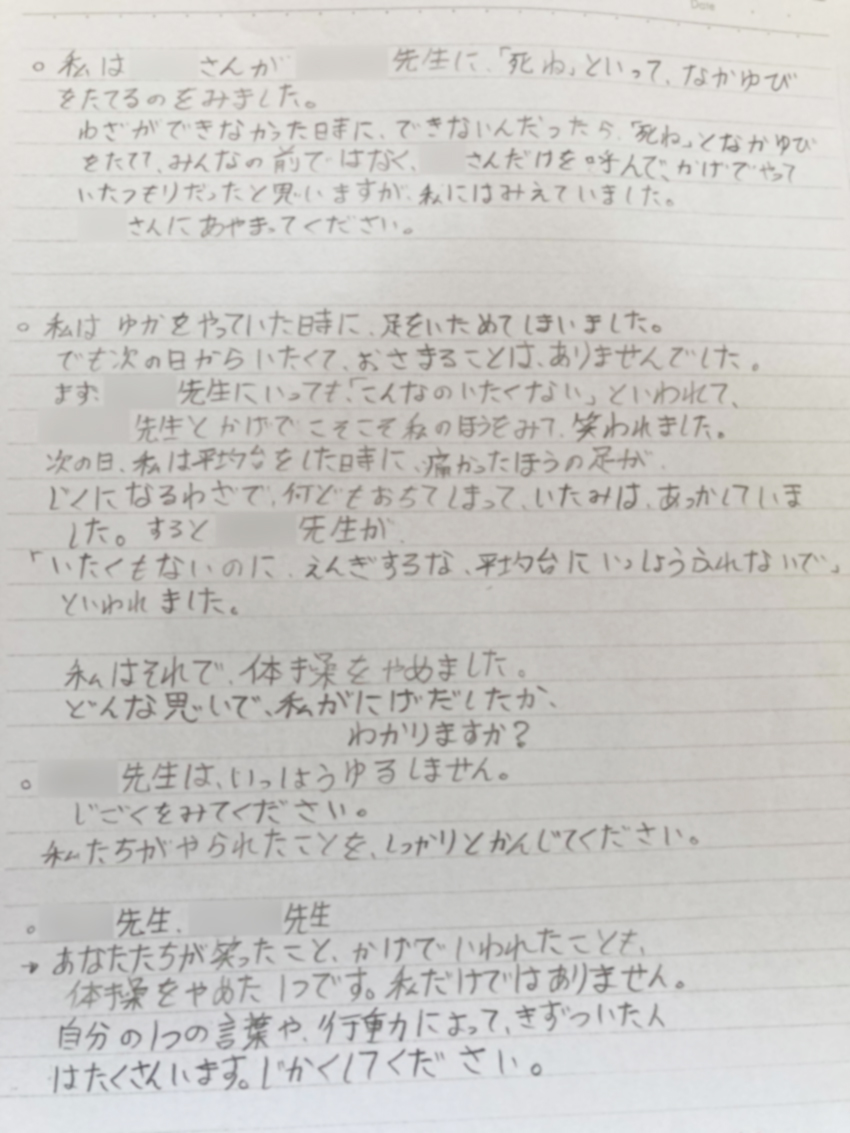 Date
○ 私は さんが 先生に、「死ね」といって、なかゆび
をたてるのをみました。
わざができなかった時に、できないんだったら、「死ね」となかゆび
をたてて、みんなの前ではなく、 さんだけを呼んで、かげでやって
いたつもりだったと思いますが、私にはみえていました。
さんにあやまってください。
○ 私は ゆかをやっていた時に、足をいためてしまいました。
でも次の日からいたくて、おさまることは、ありませんでした。
まず、 先生にいっても、「こんなのいたくない」といわれて、
先生とかげでこそこそ私のほうをみて、笑われました。
次の日、私は平均台をした時に、痛かったほうの足が、
じくになるわざで、何どもおちてしまって、いたみは、あっかしていま
した。すると 先生が、
「いたくもないのに、えんぎするな、平均台にいっしょうふれないで」
といわれました。
私はそれで、体操をやめました。
どんな思いで、私がにげだしたか、
わかりますか?
○ 先生は、いっしょうゆるしません。
じごくをみてください。
私たちがやられたことを、しっかりとかんじてください。
○ 先生、 先生
→ あなたたちが笑ったこと、かげでいわれたことも、
体操をやめた1つです。私だけではありません。
自分の1つの言葉や、行動によって、きずついた人
はたくさんいます。じかくしてください。